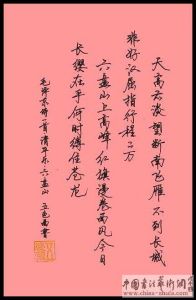 天高云淡望断南飞雁不到长城
非好汉屈指行程二万
六盘山上高峰红旗漫卷西风今日
长缨在手何时缚住苍龙
毛泽东 清平乐六盘山 书